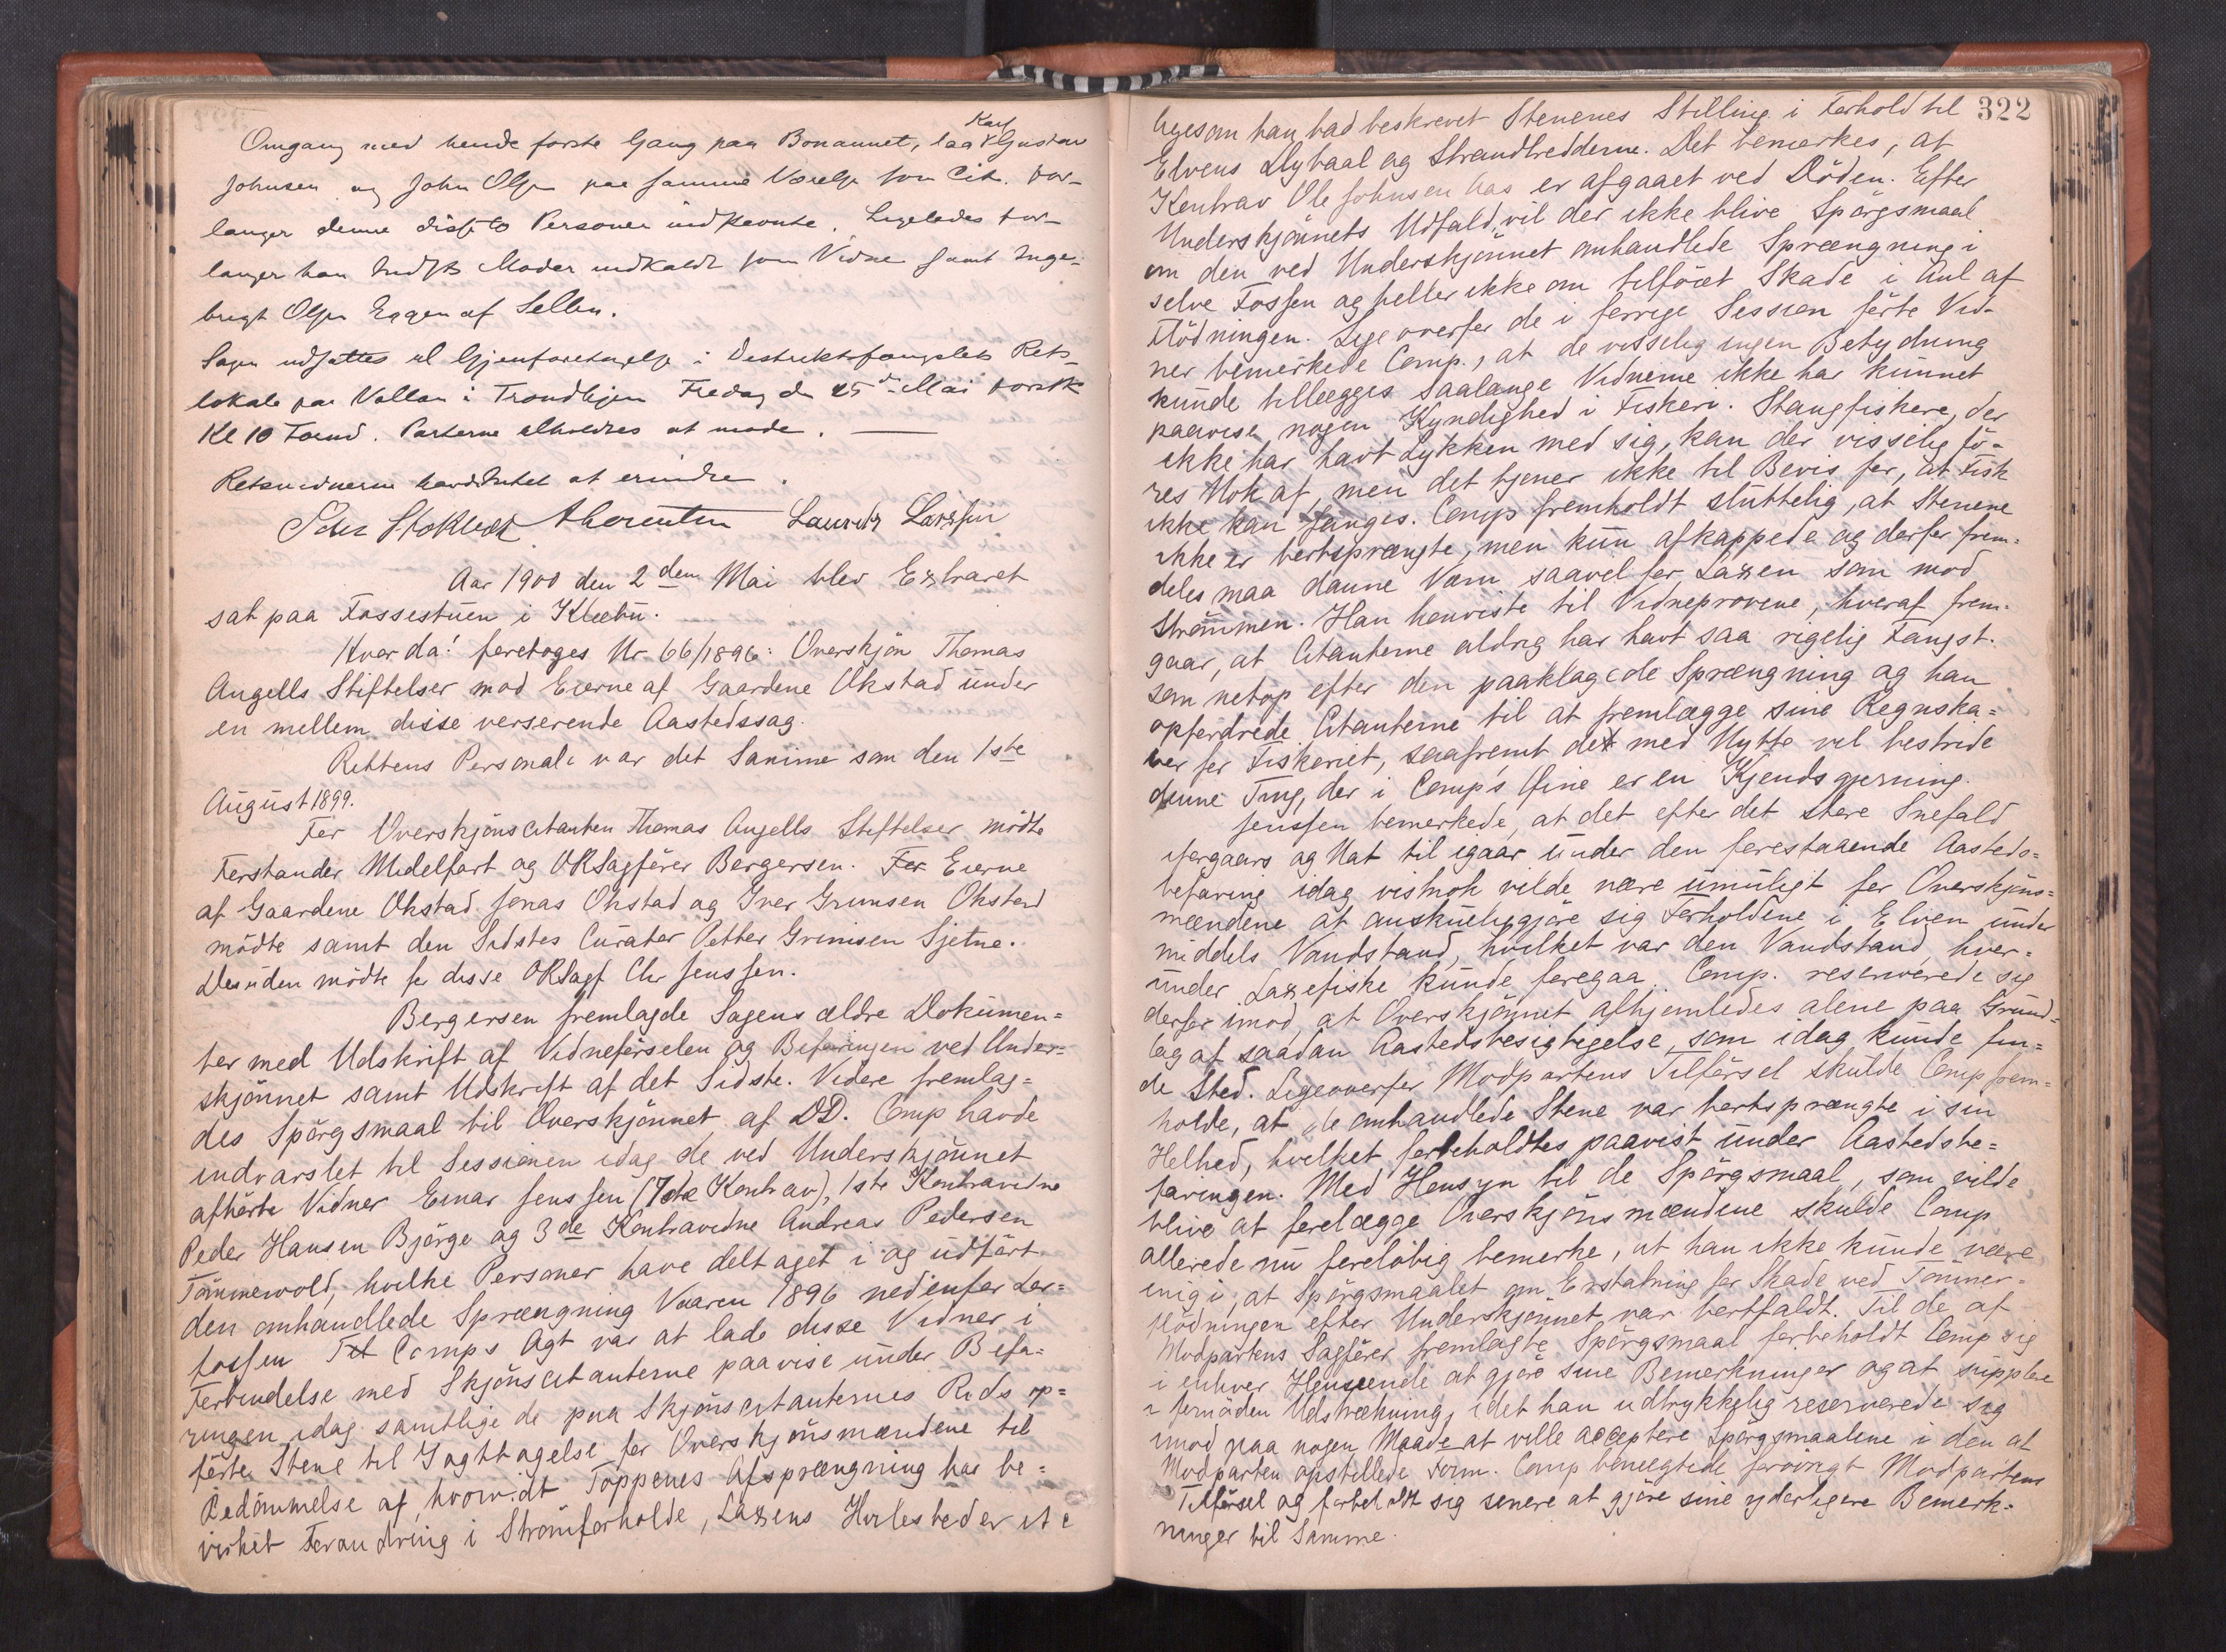 Omgang med hende første Gang paa Bonaunet, laa Karl Gustav
Johnsen og John Olsen paa samme Værelse som Cit. For-
langer denne disse to Personer indkaldte. Ligeledes for-
langer han Moder indkaldt som Vidne samt Inge-
brigt Olsen Eggen af Selbu.
Sagen udsattes til Gjenforetagelse i Distriktsfængslets Rets-
lokale paa Vollan i Trondhjem Fredag den 25de Mai førstk
Kl 10 Formd. Parterne tilholdtes at møde.
Retsvidnerne havde Intet at erindre.
Lauritz Larssen
Aar 1900 den 2den Mai blev Extraret
sat paa Fossestuen i Klæbu.
Hvor da! foretoges Nr. 66/1896: Overskjön Thomas
Angells Stiftelser mod Eierne af Gaardene Okstad under
en mellem disse verserende Aastedssag.
Rettens Personale var det Samme som den 1ste
August 1899.
For Overskjönscitanten Thomas Angells Stiftelser mödte
Forstander Midelfart og ORSagförer Bergersen. For Eierne
af Gaardene Okstad Jonas Okstad og Iver Grimsen Okstad
mödte samt den Sidstes Curator Petter Grimsen Sjetne.
Desuden mödte for disse ORSagf Chr Jenssen.
Bergersen fremlagde Sagens ældre Dokumen=
ter med Udskrift af Vidneförselen og Befaringen ved Under=
skjönnet samt Udskrift af det Sidste. Videre fremlag=
des Spörgsmaal til Overskjönnet af DD. Comp havde
indvarslet til Sessionen idag de ved Underskjönnet
afhörte Vidner Einar Jenssen (7de Kontrav), 1ste Kontravidne
Peder Hansen Bjørge og 3de Kontravidne Andreas Pedersen
Tömmervold, hvilke Personer have deltaget i og udfört
den omhandlede Sprængning Vaaren 1896 nedenfor Ler=
fossen Comps Agt var at lade disse Vidner i
Forbindelse med Skjönscitanterne paavise under Befa=
ringen idag samtlige de paa Skjönscitanternes Rids op=
förte Stene til Iagttagelse for Overskjönsmændene til
Bedömmelse af, hvorvidt Toppenes Afsprængning har be=
virket Forandring i Strömforholde, Laxens Hvilesteder etc
322
ligesom han bad beskrevet Stenenes Stilling i Forhold til
Elvens Dybaal og Strandbredderne. Det bemerkes, at
Kontrav Ole Johnsen Aas er afgaaet ved Döden. Efter
Underskjönnets Udfald vil der ikke blive Spörgsmaal
om den ved Underskjönnet omhandlede Sprængning i
selve Fossen og heller ikke om tilföiet Skade i Anl af
Flödningen. Lige overfor de i forrige Session förte Vid-
ner bemerkede Comp., at de visselig ingen Betydning
kunde tillægges saalange Vidnerne ikke har kunnet
paavise nogen Kyndighed i Fiskeri. Stangfiskere, der
ikke har havt Lykken med sig, kan der visselig fö-
res Nok af, men det tjener ikke til Bevis for, at Fisk
ikke kan fanges. Comp fremholdt sluttelig, at Stenene
ikke er bortsprængte, men kun afkappede og derfor frem=
deles maa danne Værn saavel for Laxen som mod
Strömmen. Han henviste til Vidneprovene, hvoraf frem-
gaar, at Citanterne aldrig har havt saa rigelig Fangst
som netop efter den paaklagede Sprængning og han
opfordrede Citanterne til at fremlægge sine Regnska=
ber for Fiskeriet, saafremt det med Nytte vil bestride
denne Ting, der i Comp's Öine er en Kjendsgjerning.
Jenssen bemerkede, at det efter det store Snefald
iforgaars og Nat til igaar under den forestaaende Aasteds=
befaring idag vistnok vilde være umuligt for Overskjöns=
mændene at anskueliggjöre sig Forholdene i Elven under
middels Vandstand, hvilket var den Vandstand, hvor=
under Laxefiske kunde foregaa. Comp. reserverede sig
derfor imod, at Overskjönnet afhjemledes alene paa Grund=
lag af saadan Aastedsbesigtigelse, som idag kunde fin=
de Sted. Ligeoverfor Modpartens Tilförsel skulde Comp frem=
holde, at de omhandlede Stene var bortsprængte i sin
Helhed, hvilket forbeholdtes paavist under Aastedsbe=
faringen. Med Hensyn til de Spörgsmaal, som vilde
blive at forelægge Overskjönsmændene skulde Comp
allerede nu forelöbig bemerke, at han ikke kunde være
enig i, at Spörgsmaalet om Erstatning for Skade ved Tömmer=
flödningen efter Underskjönnet var bortfaldt. Til de af
Modpartens Sagförer fremlagte Spörgsmaal forbeholdt Comp sig
i enhver Henseende at gjöre sine Bemerkninger og at supplere
i fornöden Udstrækning, idet han udtrykkelig reserverede sig
imod paa nogen Maade at ville acceptere Spörgsmaalene i den af
Modparten opstillede Form. Comp benegtede forövrigt Modpartens
Tilförsel og forbeholdt sig senere at gjöre sine yderligere Bemerk-
ninger til Samme.